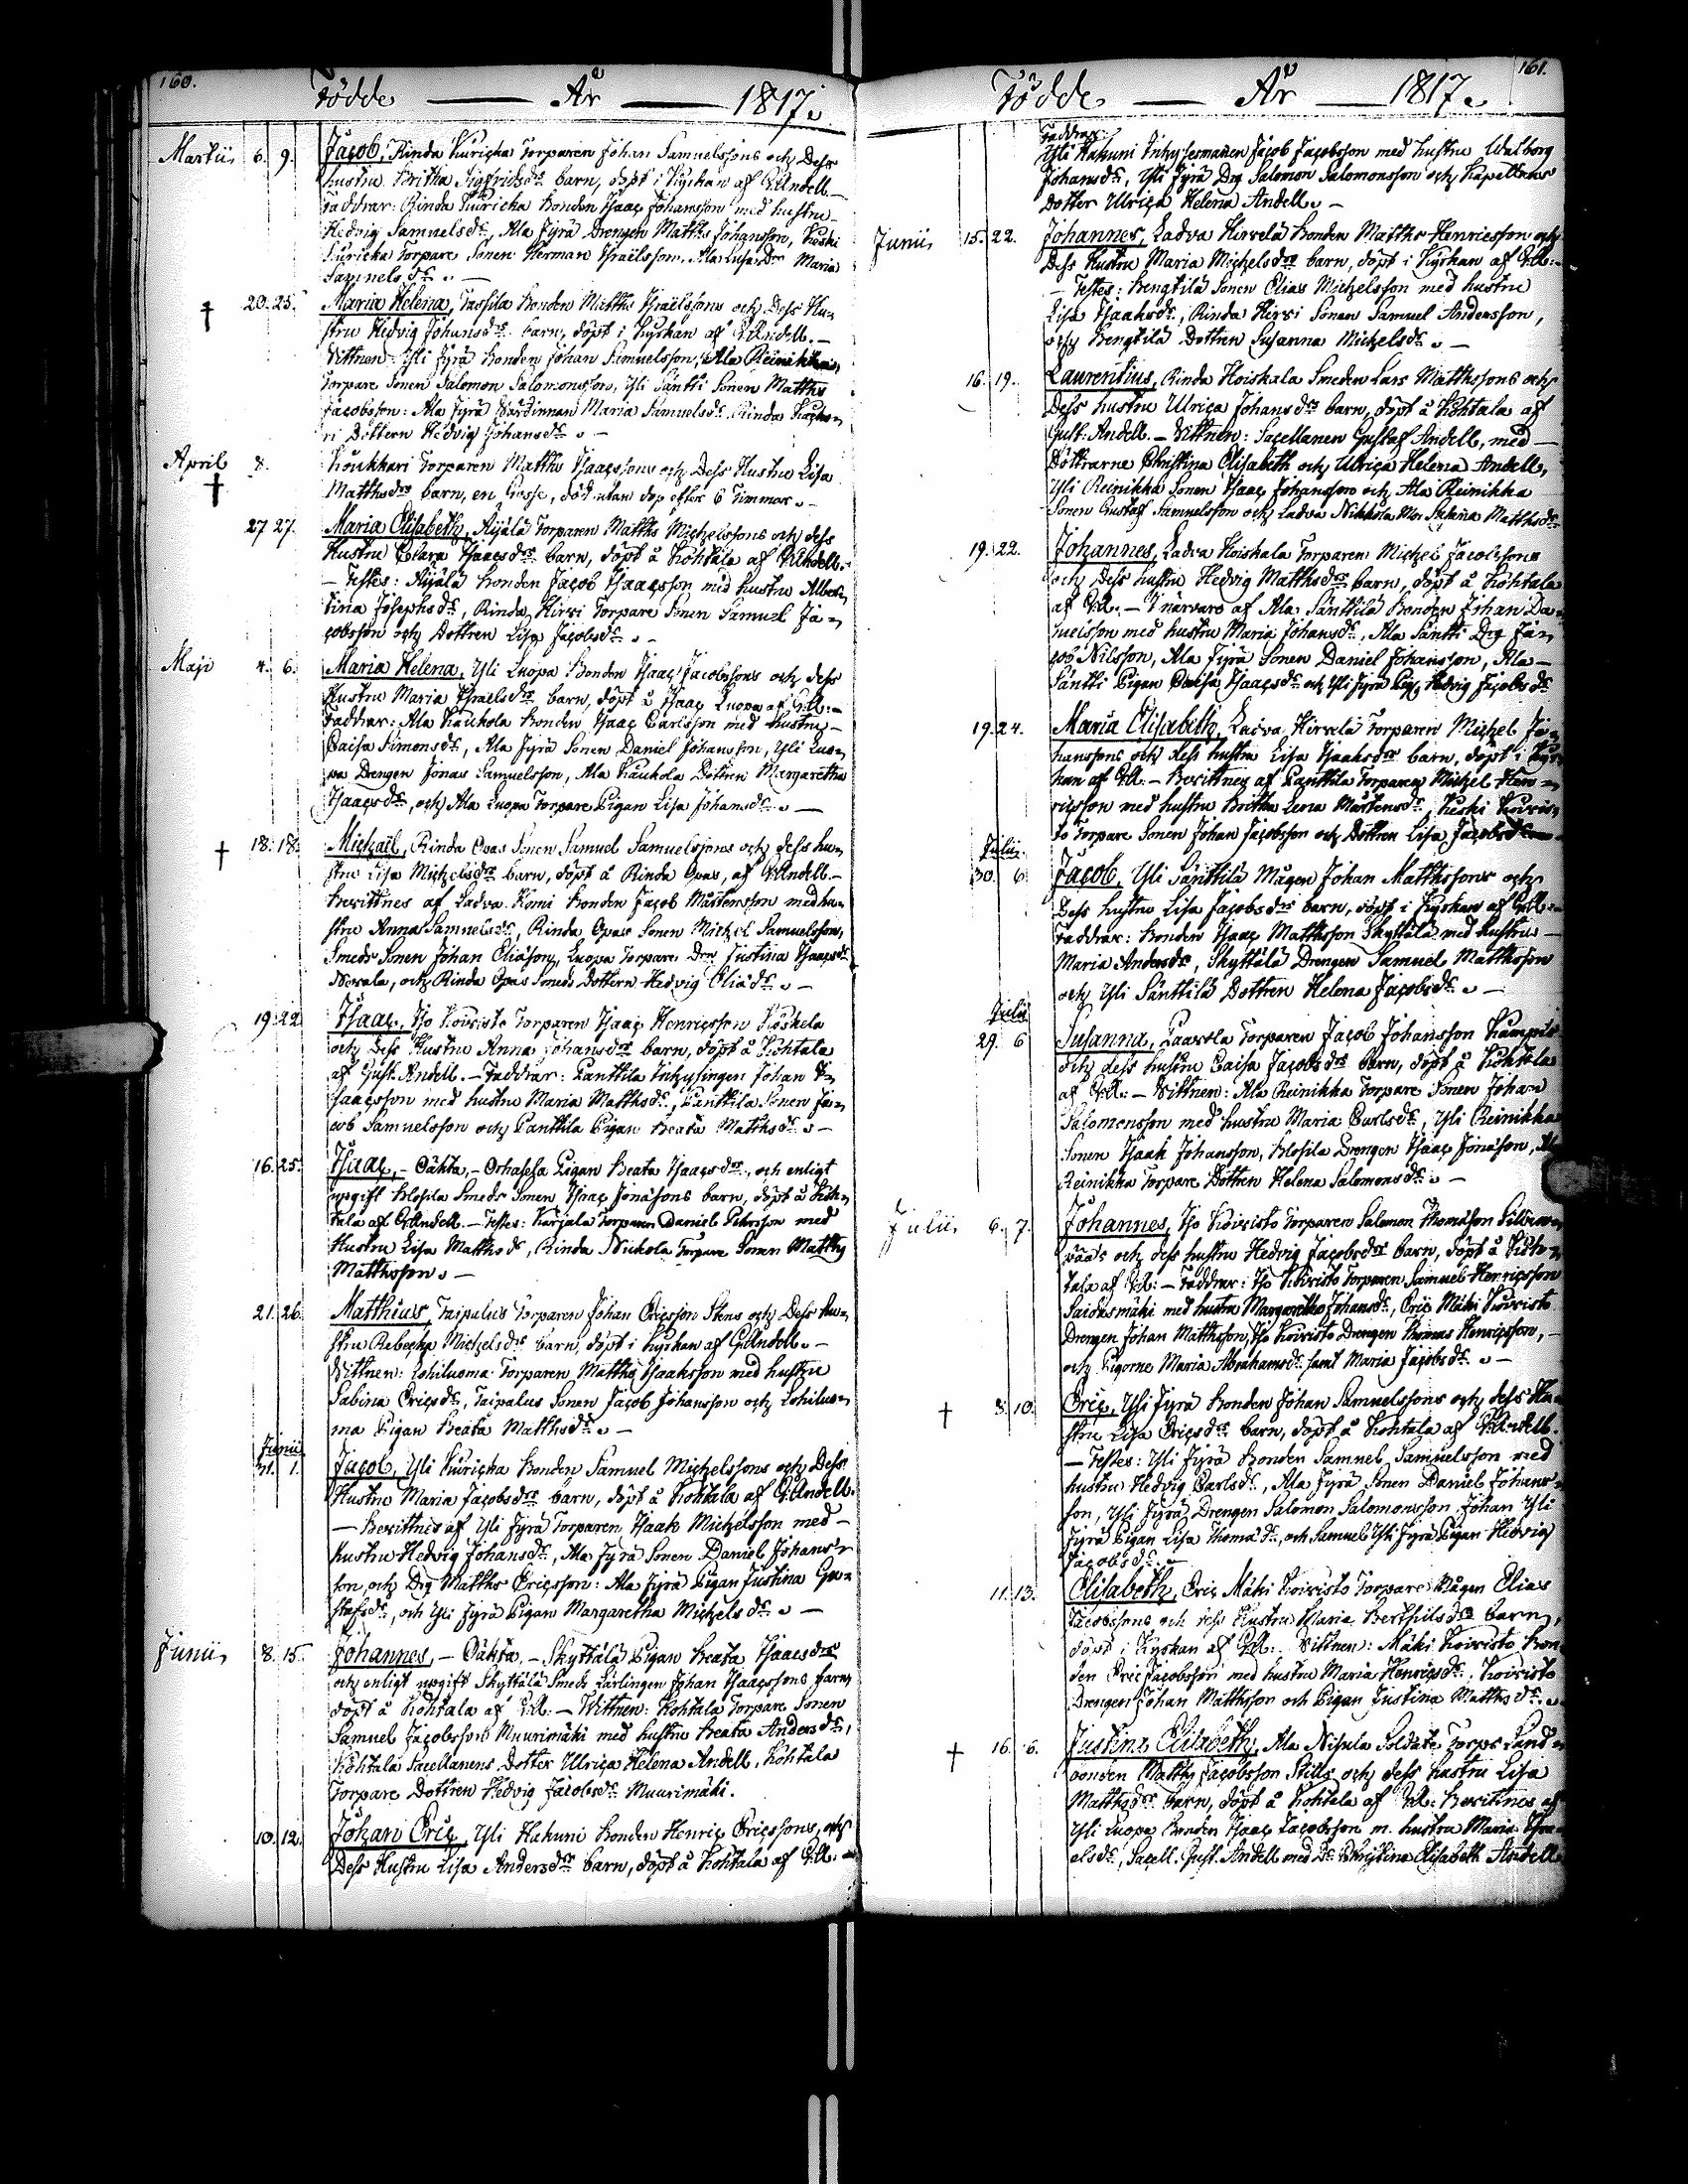 160.
Födde — År — 1817.
Martii 6. 9. Jacob, Rinda Kuricka Torparen Johan Samuelssons och Dess
hustru Britha Sigfridsdr barn, döpt i Kyrkan af G. Andell. —
Faddrar: Rinda Kuricka Bonden Isaac Johansson med hustru
Hedvig Samuelsdr, Ala Jyrä Drengen Matths Johansson, Keski
Kuricka Torpare Sonen Herman Israelsson, Maria
Samuelsdr. —
† 20. 25. Maria Helena, Tassila Bonden Matths Israelssons och Dess Hu-
stru Hedvig Johansdr barn, döpt i Kyrkan af G. Andell. —
Vittnen: Yli Jyrä Bonden Johan Samuelsson, Ala Reinikka
Torpare Sonen Salomon Salomonsson, Yli Säntti Sonen Matths
Jacobsson: Ala Jyrä Värdinnan Maria Samuelsdr. Rinda
ri Dottern Hedvig Johansdr. —
April † 8. Koukkari Torparen Matths Isaacssons och Dess Hustru Lisa
Matthsdrs barn, en Gosse, död utan dop efter 6 Timmar. —
27 27. Maria Elisabeth, Äijälä Torparen Matths Michelssons och dess
Hustru Clara Isaacsdrs barn, döpt å Kohtala af G. Andell.
— Testes: Äijälä Bonden Jacob Isaacsson med hustru Alber-
tina Josephsdr, Rinda Hirvi Torpare Sonen Samuel Ja-
cobsson och Dottren Lisa Jacobsdr. —
Maji 4. 6. Maria Helena, Yli Luopa Bonden Isaac Jacobssons och dess
Hustru Maria Israelsdrs barn, döpt å Isaac Luopa af G.A. —
Faddrar: Ala Kauhola Bonden Isaac Carlsson med hustru
Caisa Simonsdr, Ala Jyrä Sonen Daniel Johansson, Yli Luo-
pa Drengen Jonas Samuelsson, Ala Kauhola Dottren Margaretha
Isaacsdr, och Ala Luopa Torpare Pigan Lisa Johansdr. —
† 18. 18. Michaël, Rinda Opas Sonen Samuel Samuelssons och dess hu-
stru Lisa Michelsdrs barn, döpt å Rinda Opas, af G. Andell. —
Bevittnes af Ladva Komi Bonden Jacob Mårtensson med hu-
stru Anna Samuelsdr, Rinda Opas Sonen Michel Samuelsson,
Smeds Sonen Johan Eliäson, Luopa Torpare Drn Justina Isaacsdr
Nevala, och Rinda Opas Smeds Dottern Hedvig Eliädr. —
19. 22. Isaac, Iso Koivisto Torparen Isaac Henricsson Koskela
och Dess Hustru Anna Johansdrs barn, döpt å Kohtala
af Gust. Andell. — Faddrar: Panttila Inhysingen Johan I-
saacsson med hustru Maria Matthsdr, Panttila Sonen Ja-
cob Samuelsson och Panttila Pigan Beata Matthsdr. —
16. 25. Isaac, — Oäkta, — Pigan Beata Isaacsdrs, och enligt
upgift Klosila Smeds Sonen Isaac Jonäsons barn, döpt å Koh-
tala af G. Andell. — Testes: Karjala Torparen Daniel Petersson med
Hustru Lisa Matthsdr, Rinda Nickola Torpare Sonen Matths
Matthsson. —
21. 26. Matthias, Taipalus Torparen Johan Ericsson Stens och Dess hu-
stru Rebecka Michelsdrs barn, döpt i Kyrkan af G. Andell. —
Vittnen: Lohiluoma Torparen Matths Isaaksson med hustru
Sabina Ericsdr, Taipalus Sonen Jacob Johansson och Lohiluo-
ma Pigan Beata Matthsdr. —
Junii
31. 1. Jacob, Yli Kuricka Bonden Samuel Michelssons och Dess
Hustru Maria Jacobsdrs barn, döpt å Kohtala af G. Andell.
— Bevittnes af Yli Jyrä Torparen Isaak Michelsson med
hustru Hedvig Johansdr, Ala Jyrä Sonen Daniel Johans-
son, och Drg Matths Ericsson: Ala Jyrä Pigan Justina Gu-
stafsdr, och Yli Jyrä Pigan Margaretha Michelsdr. —
Junii 8. 15. Johannes, — Oäkta, — Skyttälä Pigan Beata Isaacsdrs
och enligt upgift Skyttälä Smeds Lärlingen Johan Isaacssons barn,
döpt å Kohtala af G.A. — Vittnen: Kohtala Torpare Sonen
Samuel Jacobsson Muurimäki med hustru Beata Andersdr,
Kohtala Sacellanens Dotter Ulrica Helena Andell, Kohtala
Torpare Dottren Hedvig Jacobsdr Muurimäki.
10. 12. Johan Eric, Yli Hakuni Bonden Henric Ericssons, och
Dess Hustru Lisa Andersdrs barn, döpt å Kohtala af G.A. —
161.
Födde — År — 1817.
Faddrar:
Yli Hakuni Inhysesmannen Jacob Jacobsson med hustru Walborg
Johansdr, Yli Jyrä Drg Salomon Salomonsson och Kapellans
Dotter Ulrica Helena Andell. —
Junii 15. 22. Johannes, Ladva Hirvelä Bonden Matths Henricsson och
Dess Hustru Maria Michelsdrs barn, döpt i Kyrkan af G.A. —
— Testes: Bengtilä Sonen Elias Michelsson med hustru
Lisa Isaaksdr, Rinda Hirvi Sonen Samuel Andersson,
och Bengtilä Dottren Susanna Michelsdr. —
16. 19. Laurentius, Rinda Koiskala Smeden Lars Matthssons och
Dess hustru Ulrica Johansdrs barn, döpt å Kohtala af
Gust. Andell. — Vittnen: Sacellanen Gustaf Andell, med
Döttrarne Christina Elisabeth och Ulrica Helena Andell,
Yli Reinikka Sonen Isaac Johansson och Ala Reinikka
Sonen Gustaf Samuelsson och Ladva Nikkola Susanna Matthsdr
19. 22. Johannes, Ladva Koiskala Torparen Michel Jacobssons
och Dess hustru Hedvig Matthsdrs barn, döpt å Kohtala
af G.A. — I närvaro af Ala Sänttilä Bonden Johan Da-
nielsson med hustru Maria Johansdr, Ala Säntti Drg Ja-
cob Nilsson, Ala Jyrä Sonen Daniel Johansson, Ala
Säntti Pigan Caisa Isaacsdr och Yli Jyrä Pig. Hedvig Jacobsdr
19. 24. Maria Elisabeth, Ladva Hirvelä Torparen Michel Jo-
hanssons och dess hustru Lisa Isaaksdrs barn, döpt i Kyr-
kan af G.A. — Bevittnes af Panttila Torparen Michel Hen-
ricsson med hustru Britha Lena Mårtensdr, Keski Koivis-
to Torpare Sonen Johan Jacobsson och Dottren Lisa Jacobsdr
Julii
30. 6. Jacob, Yli Sänttilä Mågen Johan Matthssons och
Dess hustru Lisa Jacobsdrs barn, döpt i Kyrkan af G.A. —
Faddrar: Bonden Isaac Matthsson Skyttälä med hustru
Maria Andersdr, Skyttälä Drengen Samuel Matthsson
och Yli Sänttilä Dottren Helena Jacobsdr. —
Julii
29. 6 Susanna, Laurola Torparen Jacob Johansson
och dess hustru Caisa Jacobsdrs barn, döpt å Kohtala
af G.A. — Vittnen: Ala Reinikka Torpare Sonen Johan
Salomonsson med hustru Maria Carlsdr, Yli Reinikka
Sonen Isaak Johansson, Klosila Drengen Isaac Jonäson, Al
Reinikka Torpare Dottren Helena Salomonsdr. —
Julii 6. 7. Johannes, Iso Koivisto Torparen Salomon Thomäson
och dess hustru Hedvig Jacobsdrs barn, döpt å Koh-
tala af G.A. — Faddrar: Iso Koivisto Torparen Samuel Henricsson
med hustru Margaretha Johansdr, Eric Mäki Koivisto
Drengen Johan Matthsson, Iso Koivisto Drengen Thomas Henricsson,
och Pigorne Maria Abrahamsdr samt Maria Jacobsdr. —
† 8. 10. Eric, Yli Jyrä Bonden Johan Samuelssons och dess Hu-
stru Lisa Ericsdrs barn, döpt å Kohtala af G. Andell.
— Testes: Yli Jyrä Bonden Samuel Samuelsson med
hustru Hedvig Carlsdr, Ala Jyrä Sonen Daniel Johans-
son, Yli Jyrä Drengen Salomon Salomonsson, Johan Yli
Jyrä Pigan Lisa Thomädr, och Samuel Yli Jyrä Pigan Hedvig
Jacobsdr. —
11. 13. Elisabeth, Eric Mäki Koivisto Torpare Mågen Elias
Jacobssons och dess Hustru Maria Berthilsdrs barn,
döpt i Kyrkan af G.A. Vittnen: Mäki Koivisto Bon-
den Eric Jacobsson med hustru Maria Henricsdr. Koivisto
Drengen Johan Matthsson och Pigan Justina Matthsdr. —
† 16. 6. Justina Elisabeth, Ala Nisula Soldate Torps Land-
bonden Matths Jacobsson Stills och dess hustru Lisa
Matthsdrs barn, döpt å Kohtala af G.A. Bevittnes af
Yli Luopa Bonden Isaac Jacobsson m. hustru Maria Isra-
elsdr, Sacell. Gust. Andell med Dr. Christina Elisabeth Andell